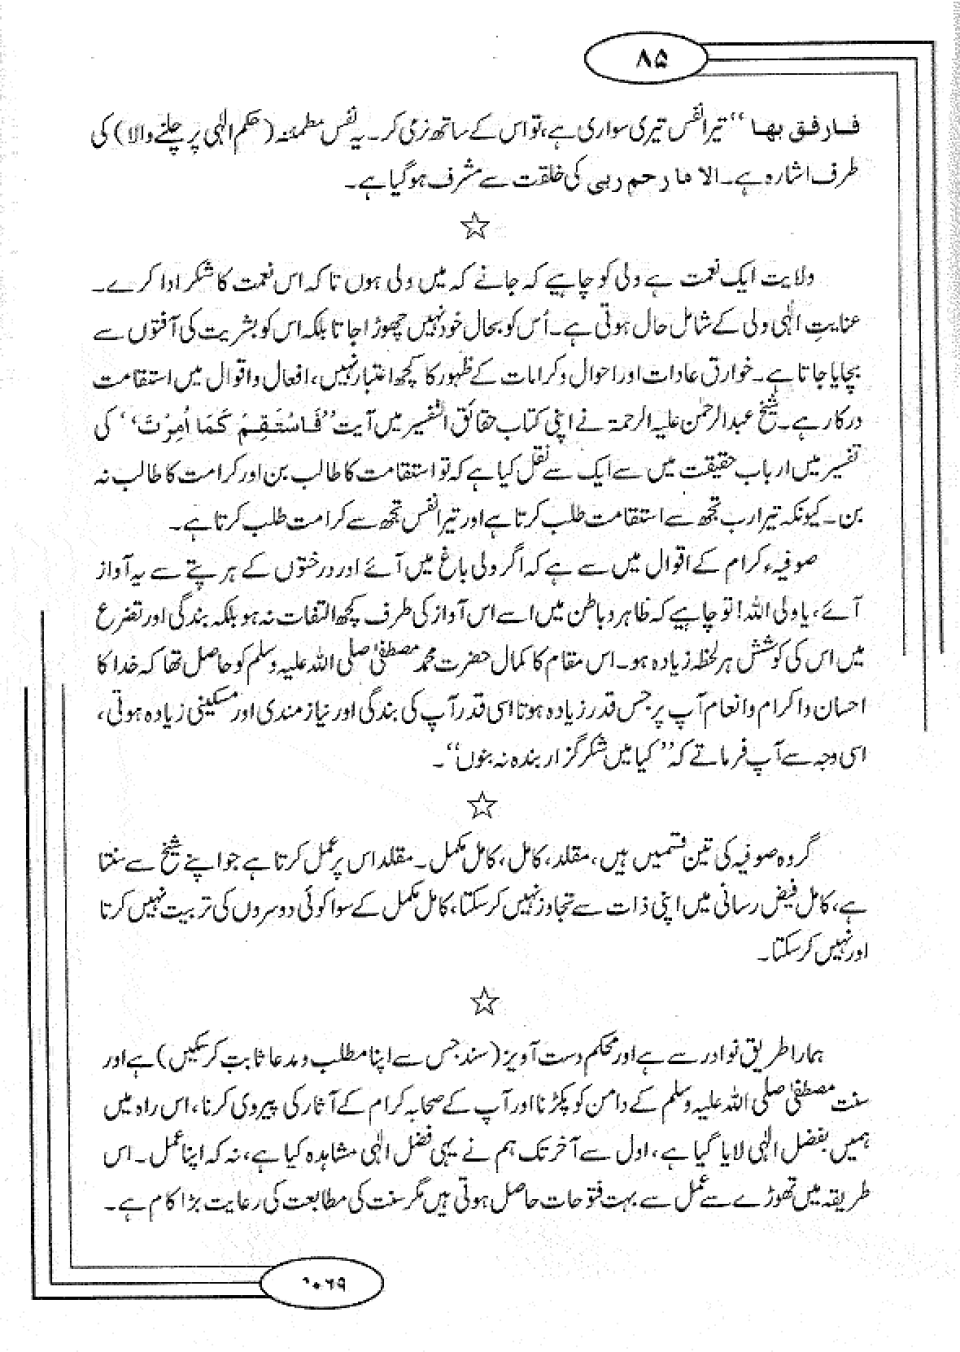 ۸۵
فارفق بها“ تیرا نفس تیری سواری ہے، تو اس کے ساتھ نرمی کر۔ یہ نفس مطمئنہ (حکم الٰہی پر چلنے والا) کی
طرف اشارہ ہے۔ الا ما رحم ربی کی خلقت سے مشرف ہو گیا ہے۔
☆
ولایت ایک نعمت ہے ولی کو چاہیے کہ جانے کہ میں ولی ہوں تا کہ اس نعمت کا شکر ادا کرے۔
عنایتِ الٰہی ولی کے شامل حال ہوتی ہے۔ اُس کو بحال خود نہیں چھوڑا جاتا بلکہ اس کو بشریت کی آفتوں سے
بچایا جاتا ہے۔ خوارق عادات اور احوال و کرامات کے ظہور کا کچھ اعتبار نہیں، افعال و اقوال میں استقامت
درکار ہے۔ شیخ عبدالرحمٰن علیہ الرحمۃ نے اپنی کتاب حقائق التفسیر میں آیت ”فَاسْتَقِمْ كَمَا اُمِرْتَ“ کی
تفسیر میں ارباب حقیقت میں سے ایک سے نقل کیا ہے کہ تو استقامت کا طالب بن اور کرامت کا طالب نہ
بن۔ کیونکہ تیرا رب تجھ سے استقامت طلب کرتا ہے اور تیرا نفس تجھ سے کرامت طلب کرتا ہے۔
صوفیہء کرام کے اقوال میں سے ہے کہ اگر ولی باغ میں آئے اور درختوں کے ہر پتے سے یہ آواز
آئے، یا ولی اللہ! تو چاہیے کہ ظاہر و باطن میں اسے اس آواز کی طرف کچھ التفات نہ ہو بلکہ بندگی اور تضرع
میں اس کی کوشش ہر لحظہ زیادہ ہو۔ اس مقام کا کمال حضرت محمد مصطفیٰ صلی اللہ علیہ وسلم کو حاصل تھا کہ خدا کا
احسان و اکرام و انعام آپ پر جس قدر زیادہ ہوتا اسی قدر آپ کی بندگی اور نیاز مندی اور مسکینی زیادہ ہوتی،
اسی وجہ سے آپ فرماتے کہ ”کیا میں شکر گزار بندہ نہ بنوں“۔
☆
گروہ صوفیہ کی تین قسمیں ہیں، مقلد، کامل، کامل مکمل۔ مقلد اس پر عمل کرتا ہے جو اپنے شیخ سے سنتا
ہے، کامل فیض رسانی میں اپنی ذات سے تجاوز نہیں کر سکتا، کامل مکمل کے سوا کوئی دوسروں کی تربیت نہیں کرتا
اور نہیں کر سکتا۔
☆
ہمارا طریق نوادر سے ہے اور محکم دست آویز (سند جس سے اپنا مطلب و مدعا ثابت کر سکیں) ہے اور
سنت مصطفیٰ صلی اللہ علیہ وسلم کے دامن کو پکڑنا اور آپ کے صحابہ کرام کے آثار کی پیروی کرنا، اس راہ میں
ہمیں بفضل الٰہی لایا گیا ہے، اول سے آخر تک ہم نے یہی فضل الٰہی مشاہدہ کیا ہے، نہ کہ اپنا عمل۔ اس
طریقہ میں تھوڑے سے عمل سے بہت فتوحات حاصل ہوتی ہیں مگر سنت کی مطابعت کی رعایت بڑا کام ہے۔
۱۰۶۹